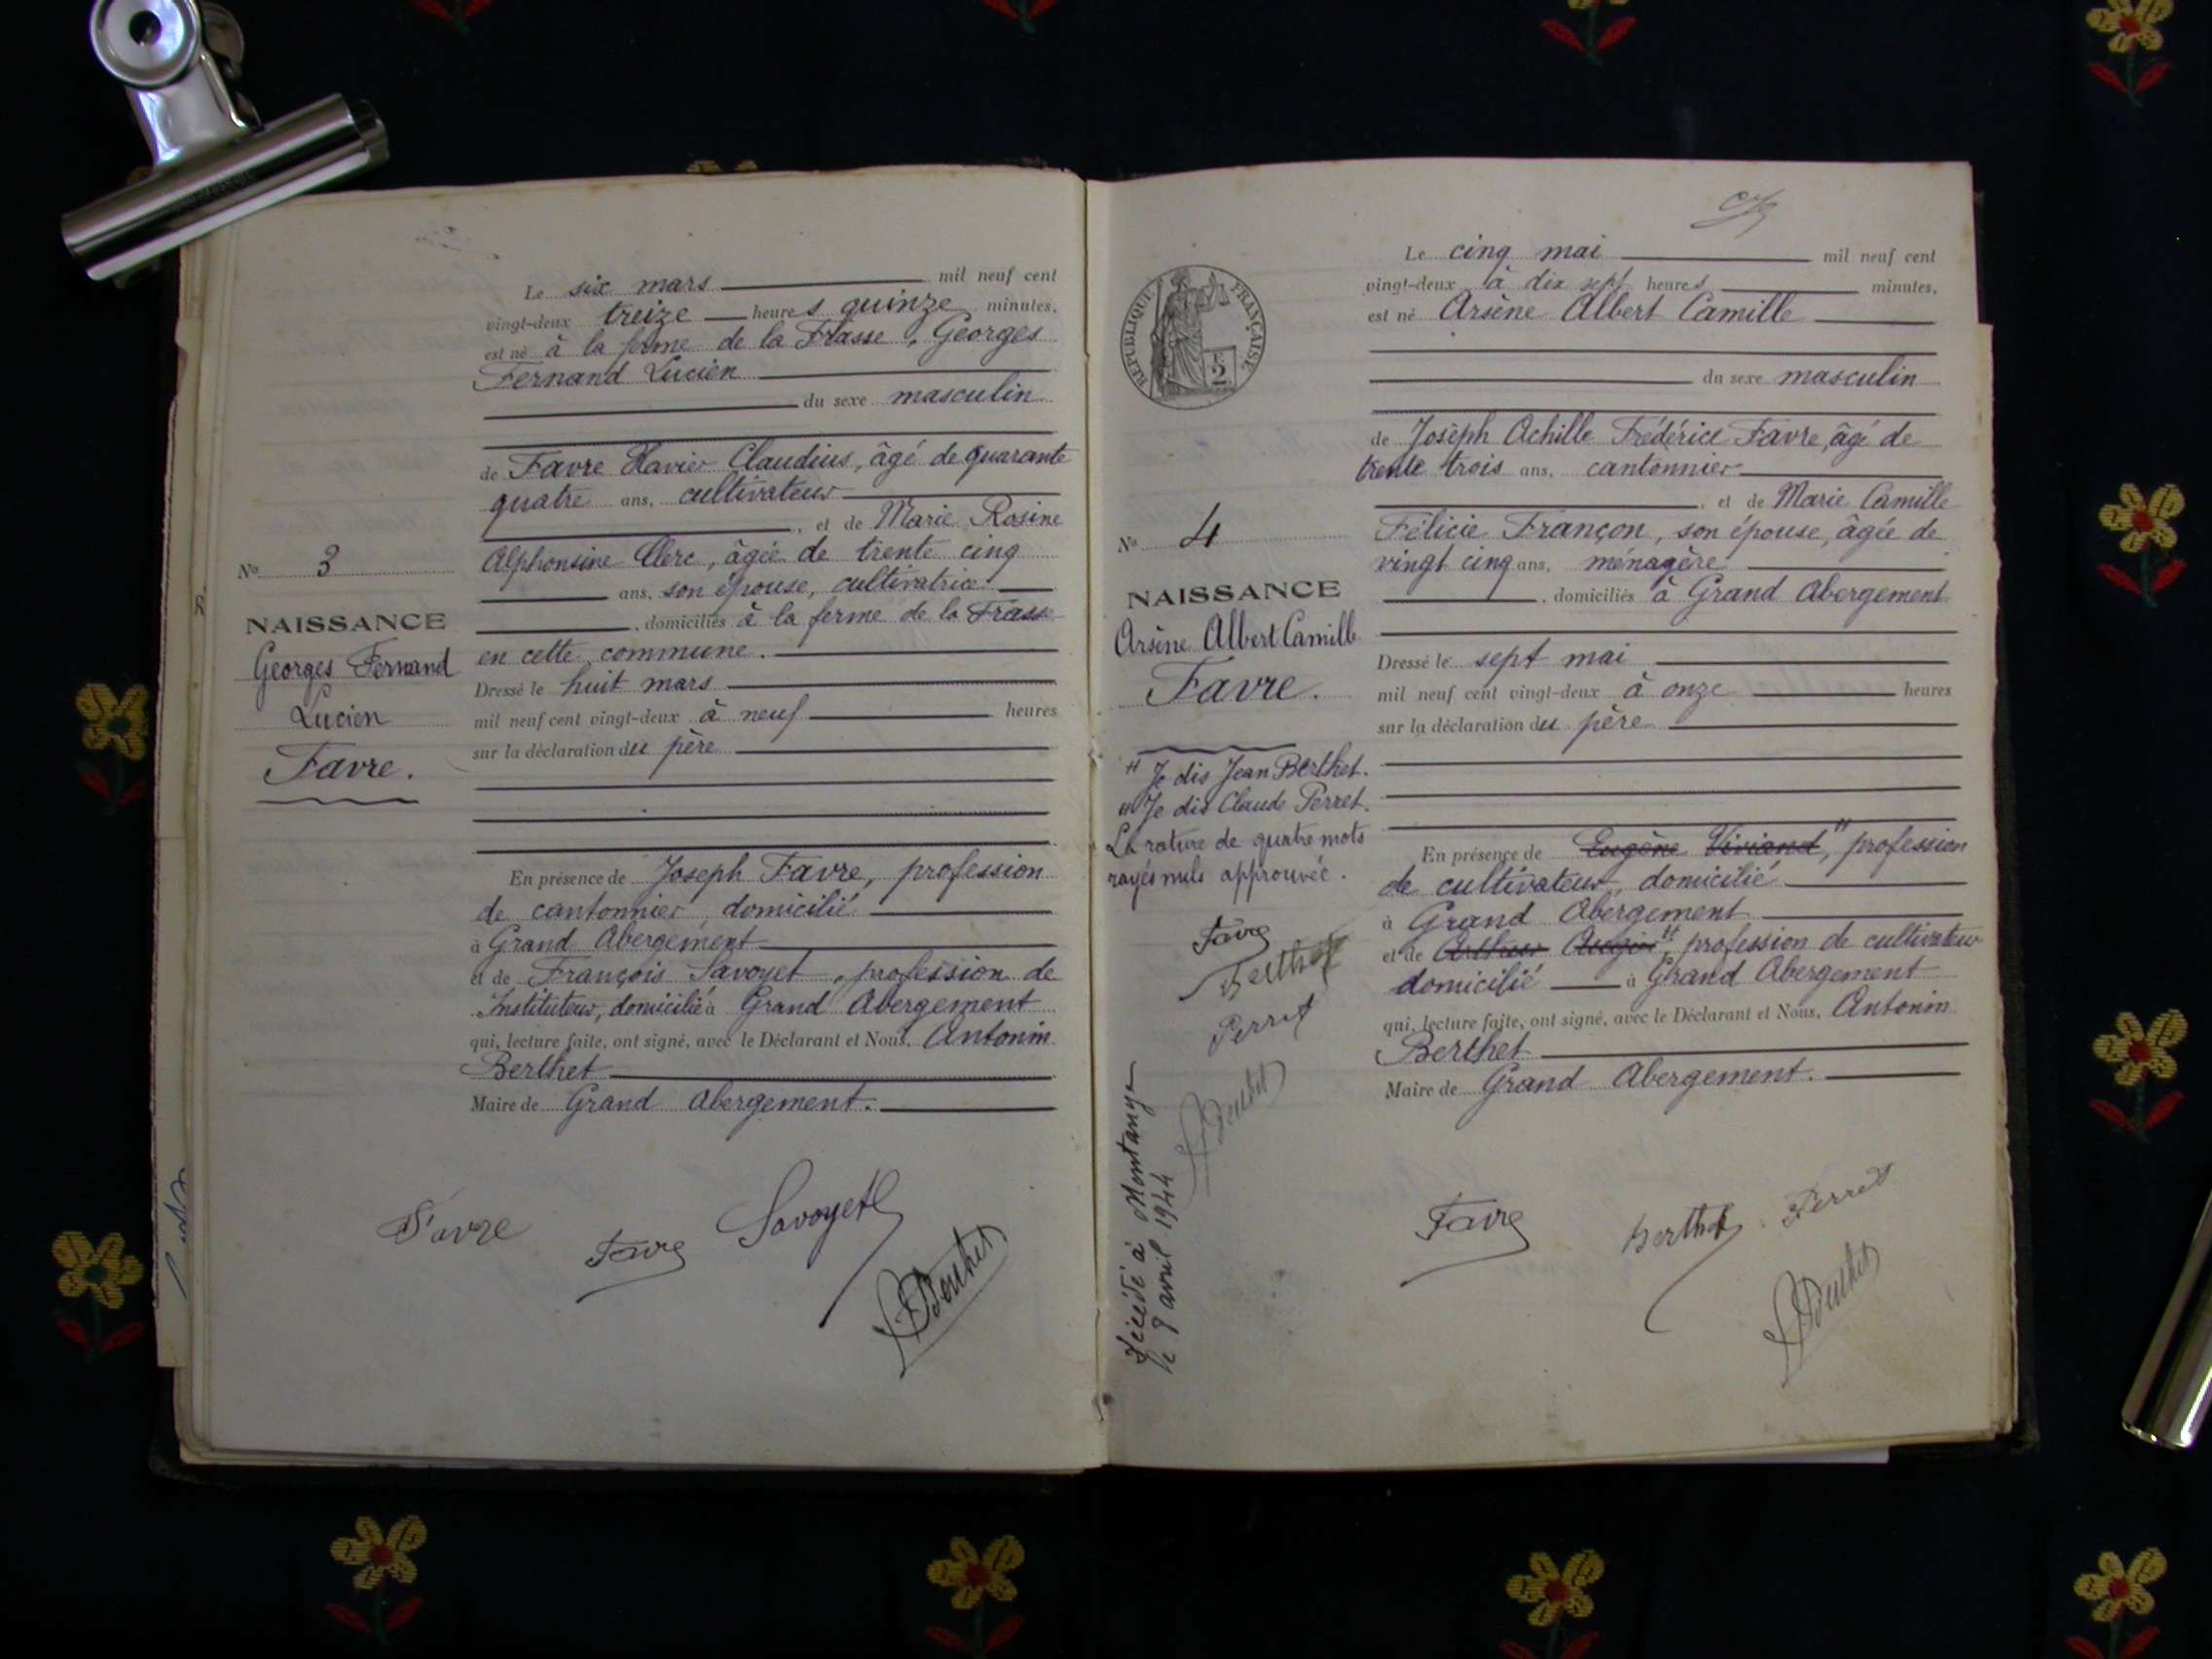 Le six mars mil neuf cent
vingt-deux treize heures quinze minutes,
est né à la ferme de la Frasse, Georges
Fernand Lucien
du sexe masculin
de Favre Xavier Claudius, âgé de quarante
quatre ans, cultivateur
, et de Marie Rosine
Alphonsine Clerc, âgée de trente cinq
ans, son épouse, cultivatrice
, domiciliés à la ferme de la Frasse
en cette commune.
Dressé le huit mars
mil neuf cent vingt-deux à neuf heures
sur la déclaration du père
En présence de Joseph Favre, profession
de cantonnier domicilié
à Grand Abergement
et de François Savoyet, profession de
Instituteur, domicilié à Grand Abergement
qui, lecture faite, ont signé, avec le Déclarant et Nous, Antonin
Berthet
Maire de Grand Abergement.
No 3
NAISSANCE
Georges Fernand
Lucien
Favre.
Favre
Favre
Savoyet
Berthet
REPUBLIQUE FRANÇAISE
5
Le cinq mai mil neuf cent
vingt-deux à dix sept heures minutes,
est né Arsène Albert Camille
du sexe masculin
de Joseph Achille Frédéric Favre, âgé de
trente trois ans, cantonnier
, et de Marie Camille
Félicie Françon, son épouse, âgée de
vingt cinq ans, ménagère
, domiciliés à Grand Abergement
Dressé le sept mai
mil neuf cent vingt-deux à onze heures
sur la déclaration du père
En présence de Eugène Viviand", profession
de cultivateur, domicilié
à Grand Abergement
et de profession de cultivateur
domicilié à Grand Abergement
qui, lecture faite, ont signé, avec le Déclarant et Nous, Antonin
Berthet
Maire de Grand Abergement.
No 4
NAISSANCE
Arsène Albert Camille
Favre.
" Je dis Jean Berthet.
Je dis Claude Perret.
La rature de quatre mots
rayés nuls approuvée.
Favre
Berthet
Perret
Berthet
Décédé à Montange
le 9 avril 1944
Favre
Berthet
Perret
Berthet